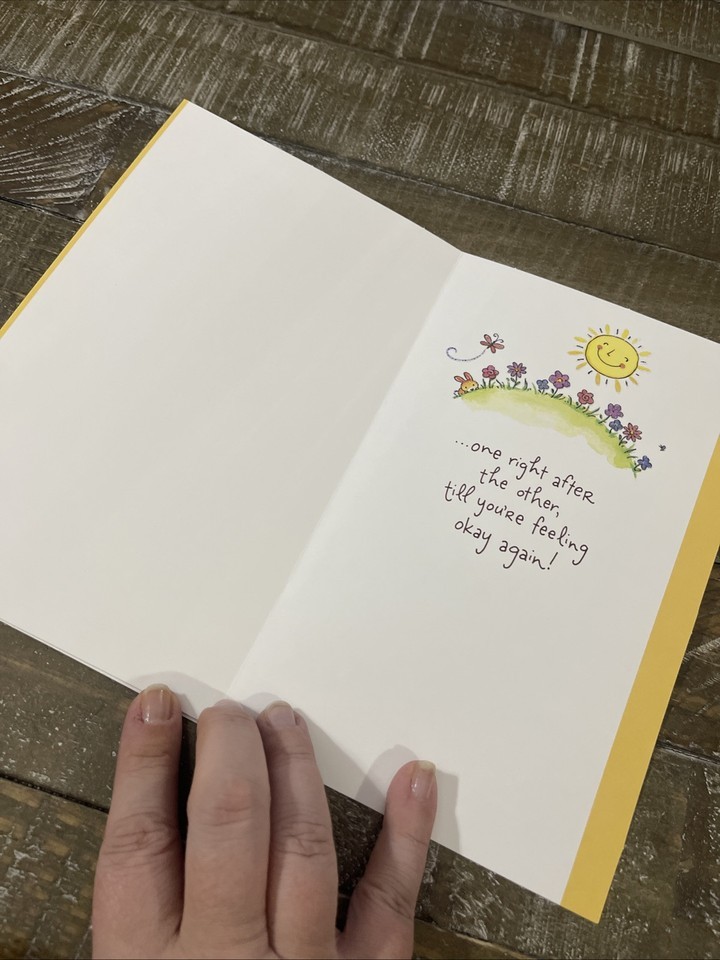 ...one right after
the other,
till you're feeling
okay again!